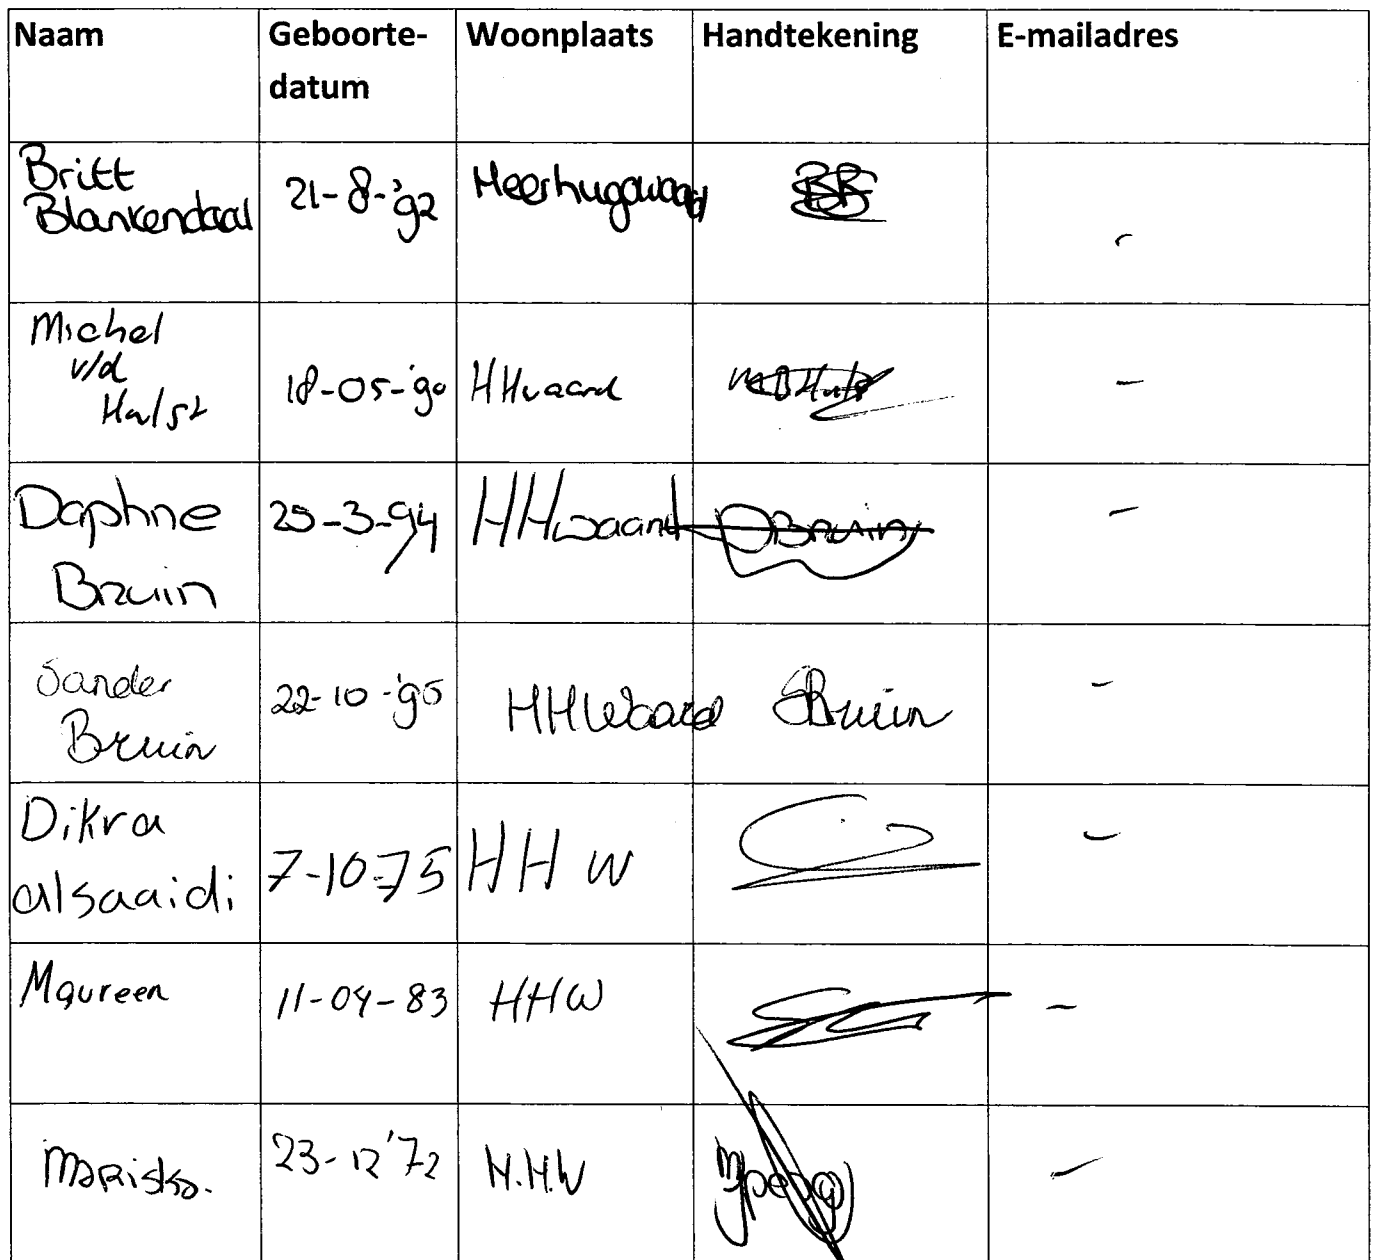 Naam Geboorte- Woonplaats Handtekening E-mailadres
datum
Britt
Blankendaal 21-8-'92 Heerhugowaard BB -
Michel
v/d
Hulst 18-05-'90 HHwaard -
Daphne
Bruin 25-3-94 HHwaard DBruin -
Sander
Bruin 22-10-'95 HHWaard SBruin -
Dikra
alsaaidi 7-10-75 HH W -
Maureen 11-04-83 HHW -
Mariska. 23-12'72 H.H.W -